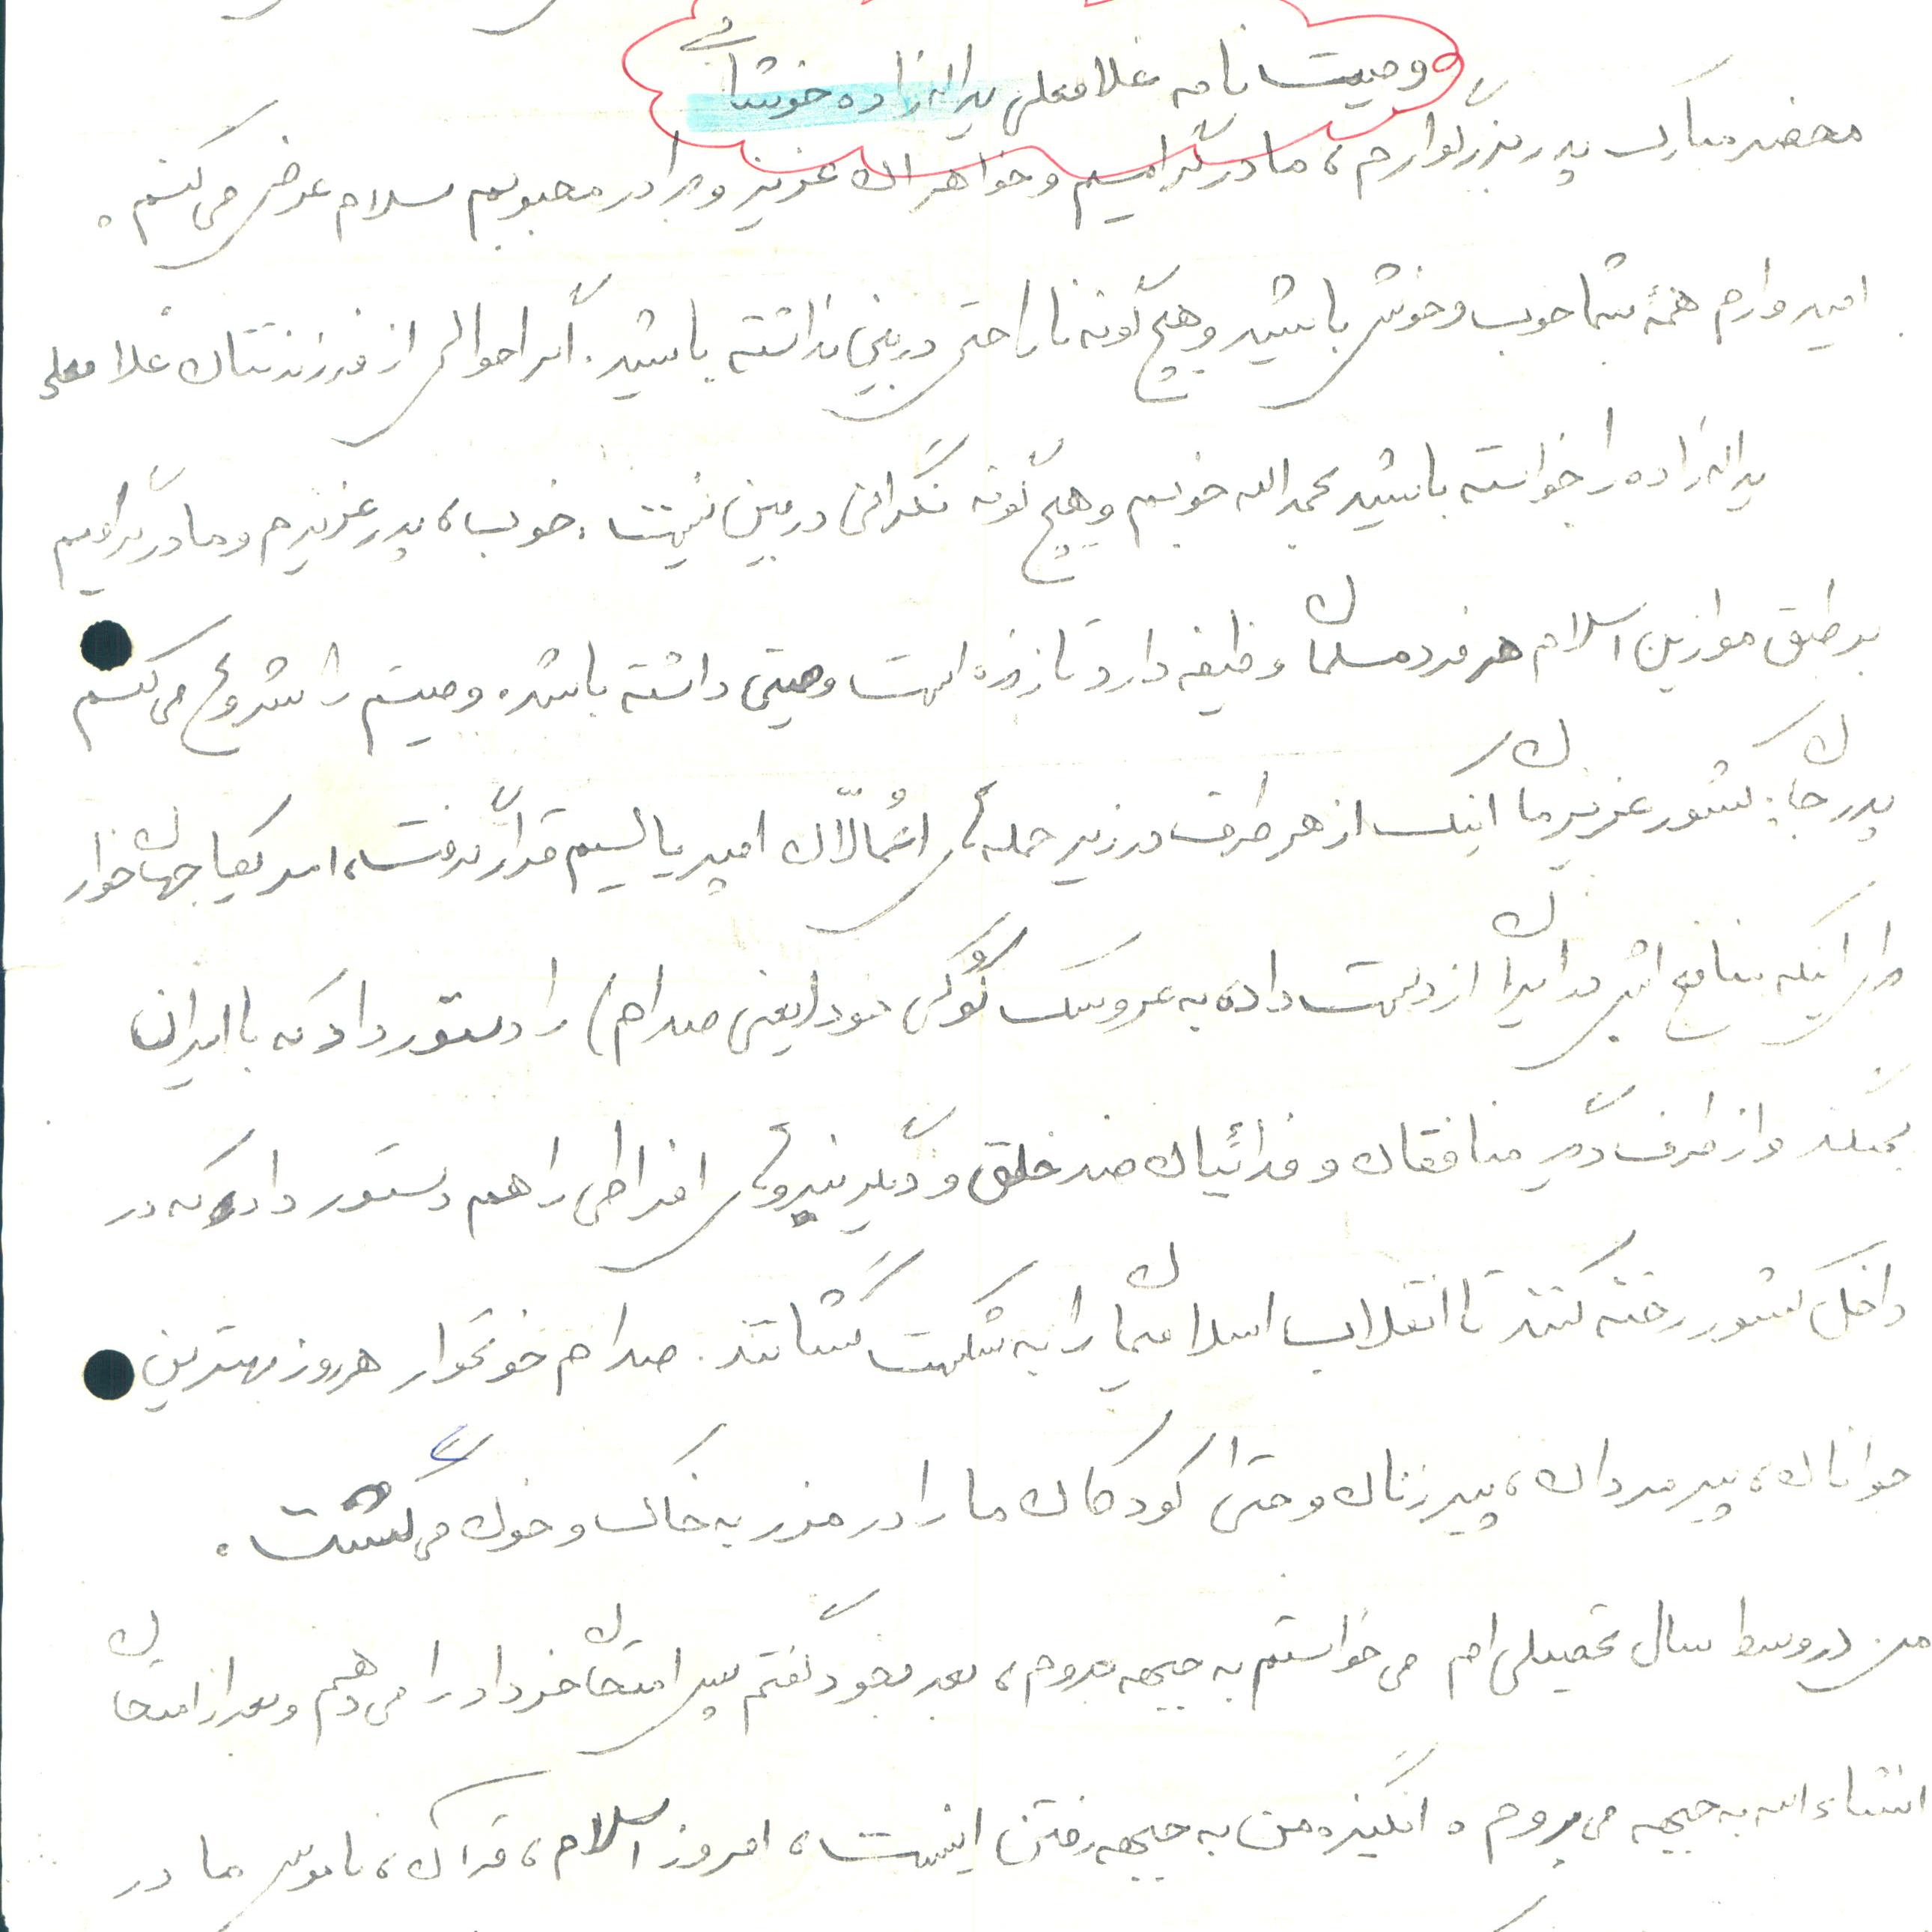 وصیت نامه غلامعلی یداله زاده خوشابی
محضر مبارک پدر بزرگوارم، مادر گرامیم و خواهران عزیز و برادر محبوبم سلام عرض می کنم.
امیدوارم همهٔ شما خوب و خوش باشید و هیچ گونه ناراحتی دربین نداشته باشید. اگر احوالی از فرزندتان غلامعلی
یداله زاده را خواسته باشید بحمدالله خوبم و هیچ گونه نگرانی دربین نیست. خوب، پدر عزیزم و مادر گرامیم
بر طبق موازین اسلام هر فرد مسلمان وظیفه دارد تا زنده است وصیتی داشته باشد. وصیتم را شروع می کنم
پدر جان: کشور عزیزمان اینک از هر طرف در زیر حمله های امپریالیسم قرار گرفته، امریکای جهان خوار
برای اینکه منافع اش در ایران از دست داده به عروسک کوکی خود (یعنی صدام) را دستور داد که با ایران
بجنگند و از طرف دیگر منافقان و فدائیان ضد خلق و دیگر نیروهای افراطی را هم دستور داد که در
داخل کشور رخنه کنند تا انقلاب اسلامیمان را به شکست کشانند. صدام خونخوار هر روز بهترین
جوانان، پیرمردان، پیرزنان و حتی کودکان ما را در مرز به خاک و خون می کشت.
من در وسط سال تحصیلی ام می خواستم به جبهه بروم، بعد بخود گفتم پس امتحان خرداد را می دهم و بعد از امتحان
انشاءالله به جبهه می روم. انگیزه من به جبهه رفتن اینست، امروز اسلام، قران، ناموس ما در